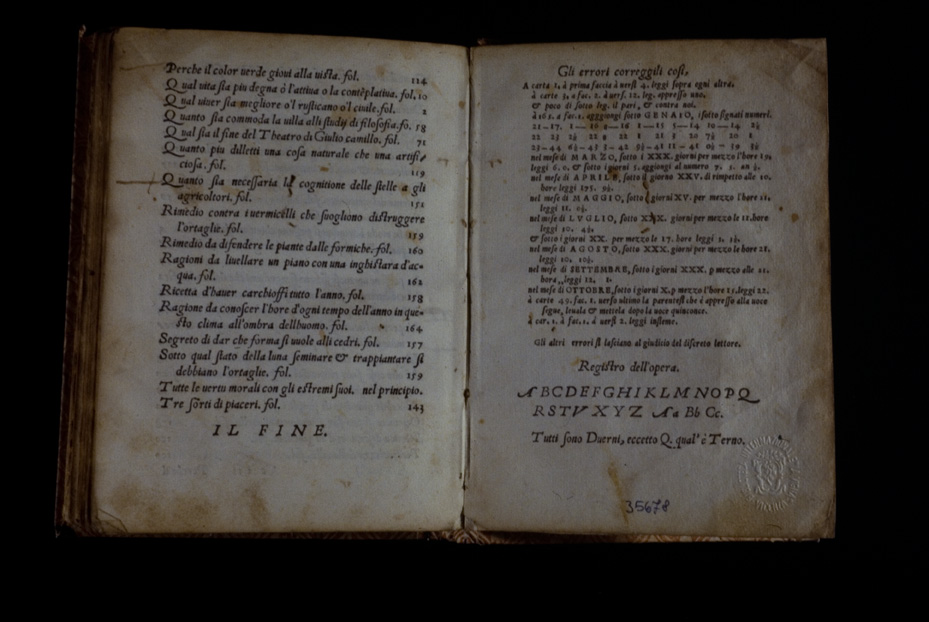 Perche il color uerde gioui alla uista. fol. 114
Qual uita sia piu degna ò l'attiua o la contẽplatiua. fol. 10
Qual uiuer sia megliore o'l rusticano o'l ciuile. fol. 2
Quanto sia commoda la uilla alli studij di filosofia. fo. 58
Qual sia il fine del Theatro di Giulio camillo. fol. 71
Quanto piu dilletti una cosa naturale che una artifi-
ciosa. fol. 119
Quanto sia necessaria la cognitione delle stelle a gli
agricoltori. fol. 151
Rimedio contra i uermicelli che sogliono distruggere
l'ortaglie. fol. 159
Rimedio da difendere le piante dalle formiche. fol. 160
Ragioni da liuellare un piano con una inghistara d'ac-
qua. fol. 162
Ricetta d'hauer carchioffi tutto l'anno. fol. 158
Ragione da conoscer l'hore d'ogni tempo dell'anno in que-
sto clima all'ombra dell'huomo. fol. 164
Segreto di dar che forma si uuole alli cedri. fol. 157
Sotto qual stato della luna seminare & trappiantare si
debbiano l'ortaglie. fol. 159
Tutte le uertu morali con gli estremi suoi. nel principio.
Tre sorti di piaceri. fol. 143
IL FINE.
Gli errori correggili cosi.
A carte 1. à prima faccia à uersi 4. leggi sopra ogni altra.
à carte 3. a fac. 2. à uers. 12. leg. appresso uno.
& poco di sotto leg. il pari, & contra noi.
à 165. a fac. 1. aggiongi sotto GENAIO, i sotto signati numeri.
nel mese di MARZO, sotto i XXX. giorni per mezzo l'hore 19.
leggi 6. 0. & sotto i giorni 5. aggiongi al numero
nel mese di APRILE, sotto il giorno XXV. di rimpetto alle 10.
hore leggi 175. 9½.
nel mese di MAGGIO, sotto i giorni XV. per mezzo l'hore 11.
leggi 11.
nel mese di LVGLIO, sotto XXX. giorni per mezzo le 11. hore
leggi 10.
& sotto i giorni XX. per mezzo le 17. hore leggi
nel mese di AGOSTO, sotto XXX. giorni per mezzo le hore 21.
leggi 10.
nel mese di SETTEMBRE, sotto i giorni XXX. p mezzo alle 11.
hore, leggi 12. 1.
nel mese di OTTOBRE, sotto i giorni X. p mezzo l'hore 15. leggi 22.
à carte 49. fac. 1. uerso ultimo la parentesi che è appresso alla uoce
segue, leuala & mettela dopo la uoce quinconce.
à car. 1. à fac. 1. à uersi 2. leggi insieme.
Gli altri errori si lasciano al giudicio del discreto lettore.
Registro dell'opera.
ABCDEFGHIKLMNOPQ
RSTVXYZ Aa Bb Cc.
Tutti sono Duerni, eccetto Q. qual' è Terno.
35678